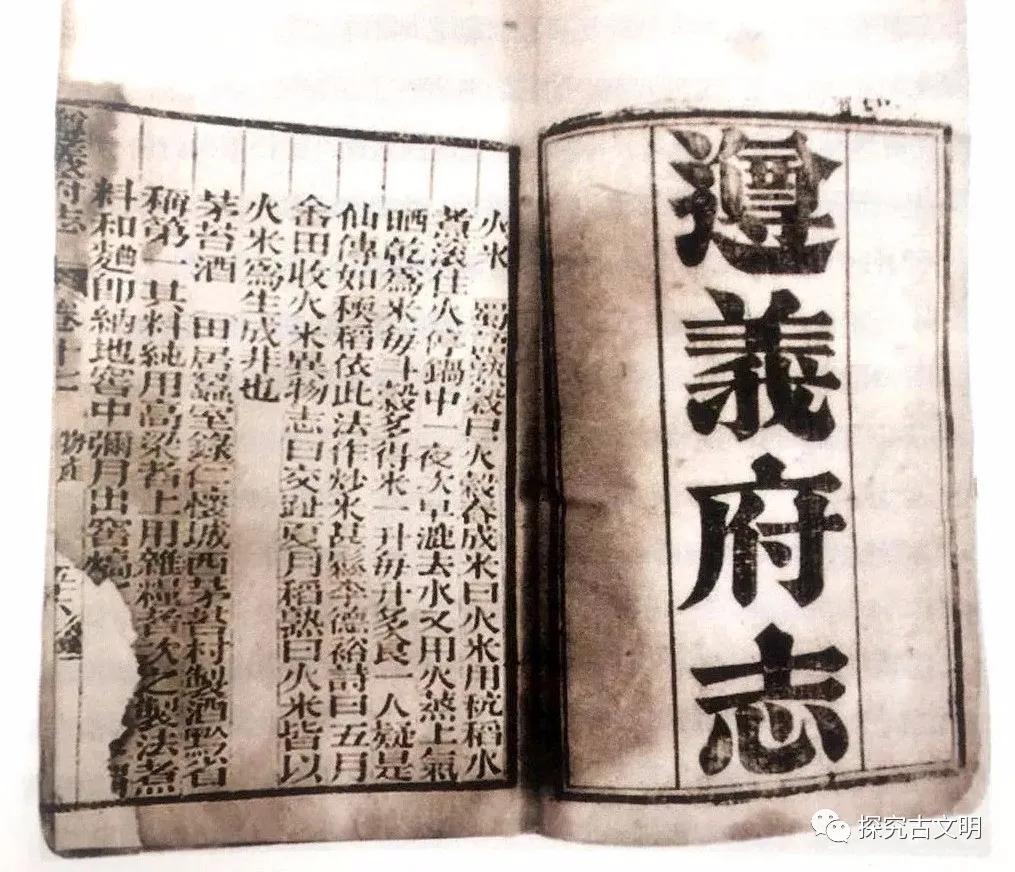 遵義府志
火米 蜀熟穀曰火穀舂成米曰火米用秔稻水
煮滾住火停鍋中一夜次早漉去水又用火蒸上氣
晒乾爲米每斗穀多得米一升每升多食一人疑是
仙傳如稉稻依此法作炒米甚鬆李德裕詩曰五月
畬田收火米異物志曰交趾夏月稻熟曰火米皆以
火米爲生成非也
茅苔酒 田居蠶室錄仁懷城西茅苔村製酒黔省
稱第一其料純用高粱者上用雜糧者次之製法煮
料和麯即納地窖中彌月出窖熇
遵義府志 卷十七 物產
探究古文明